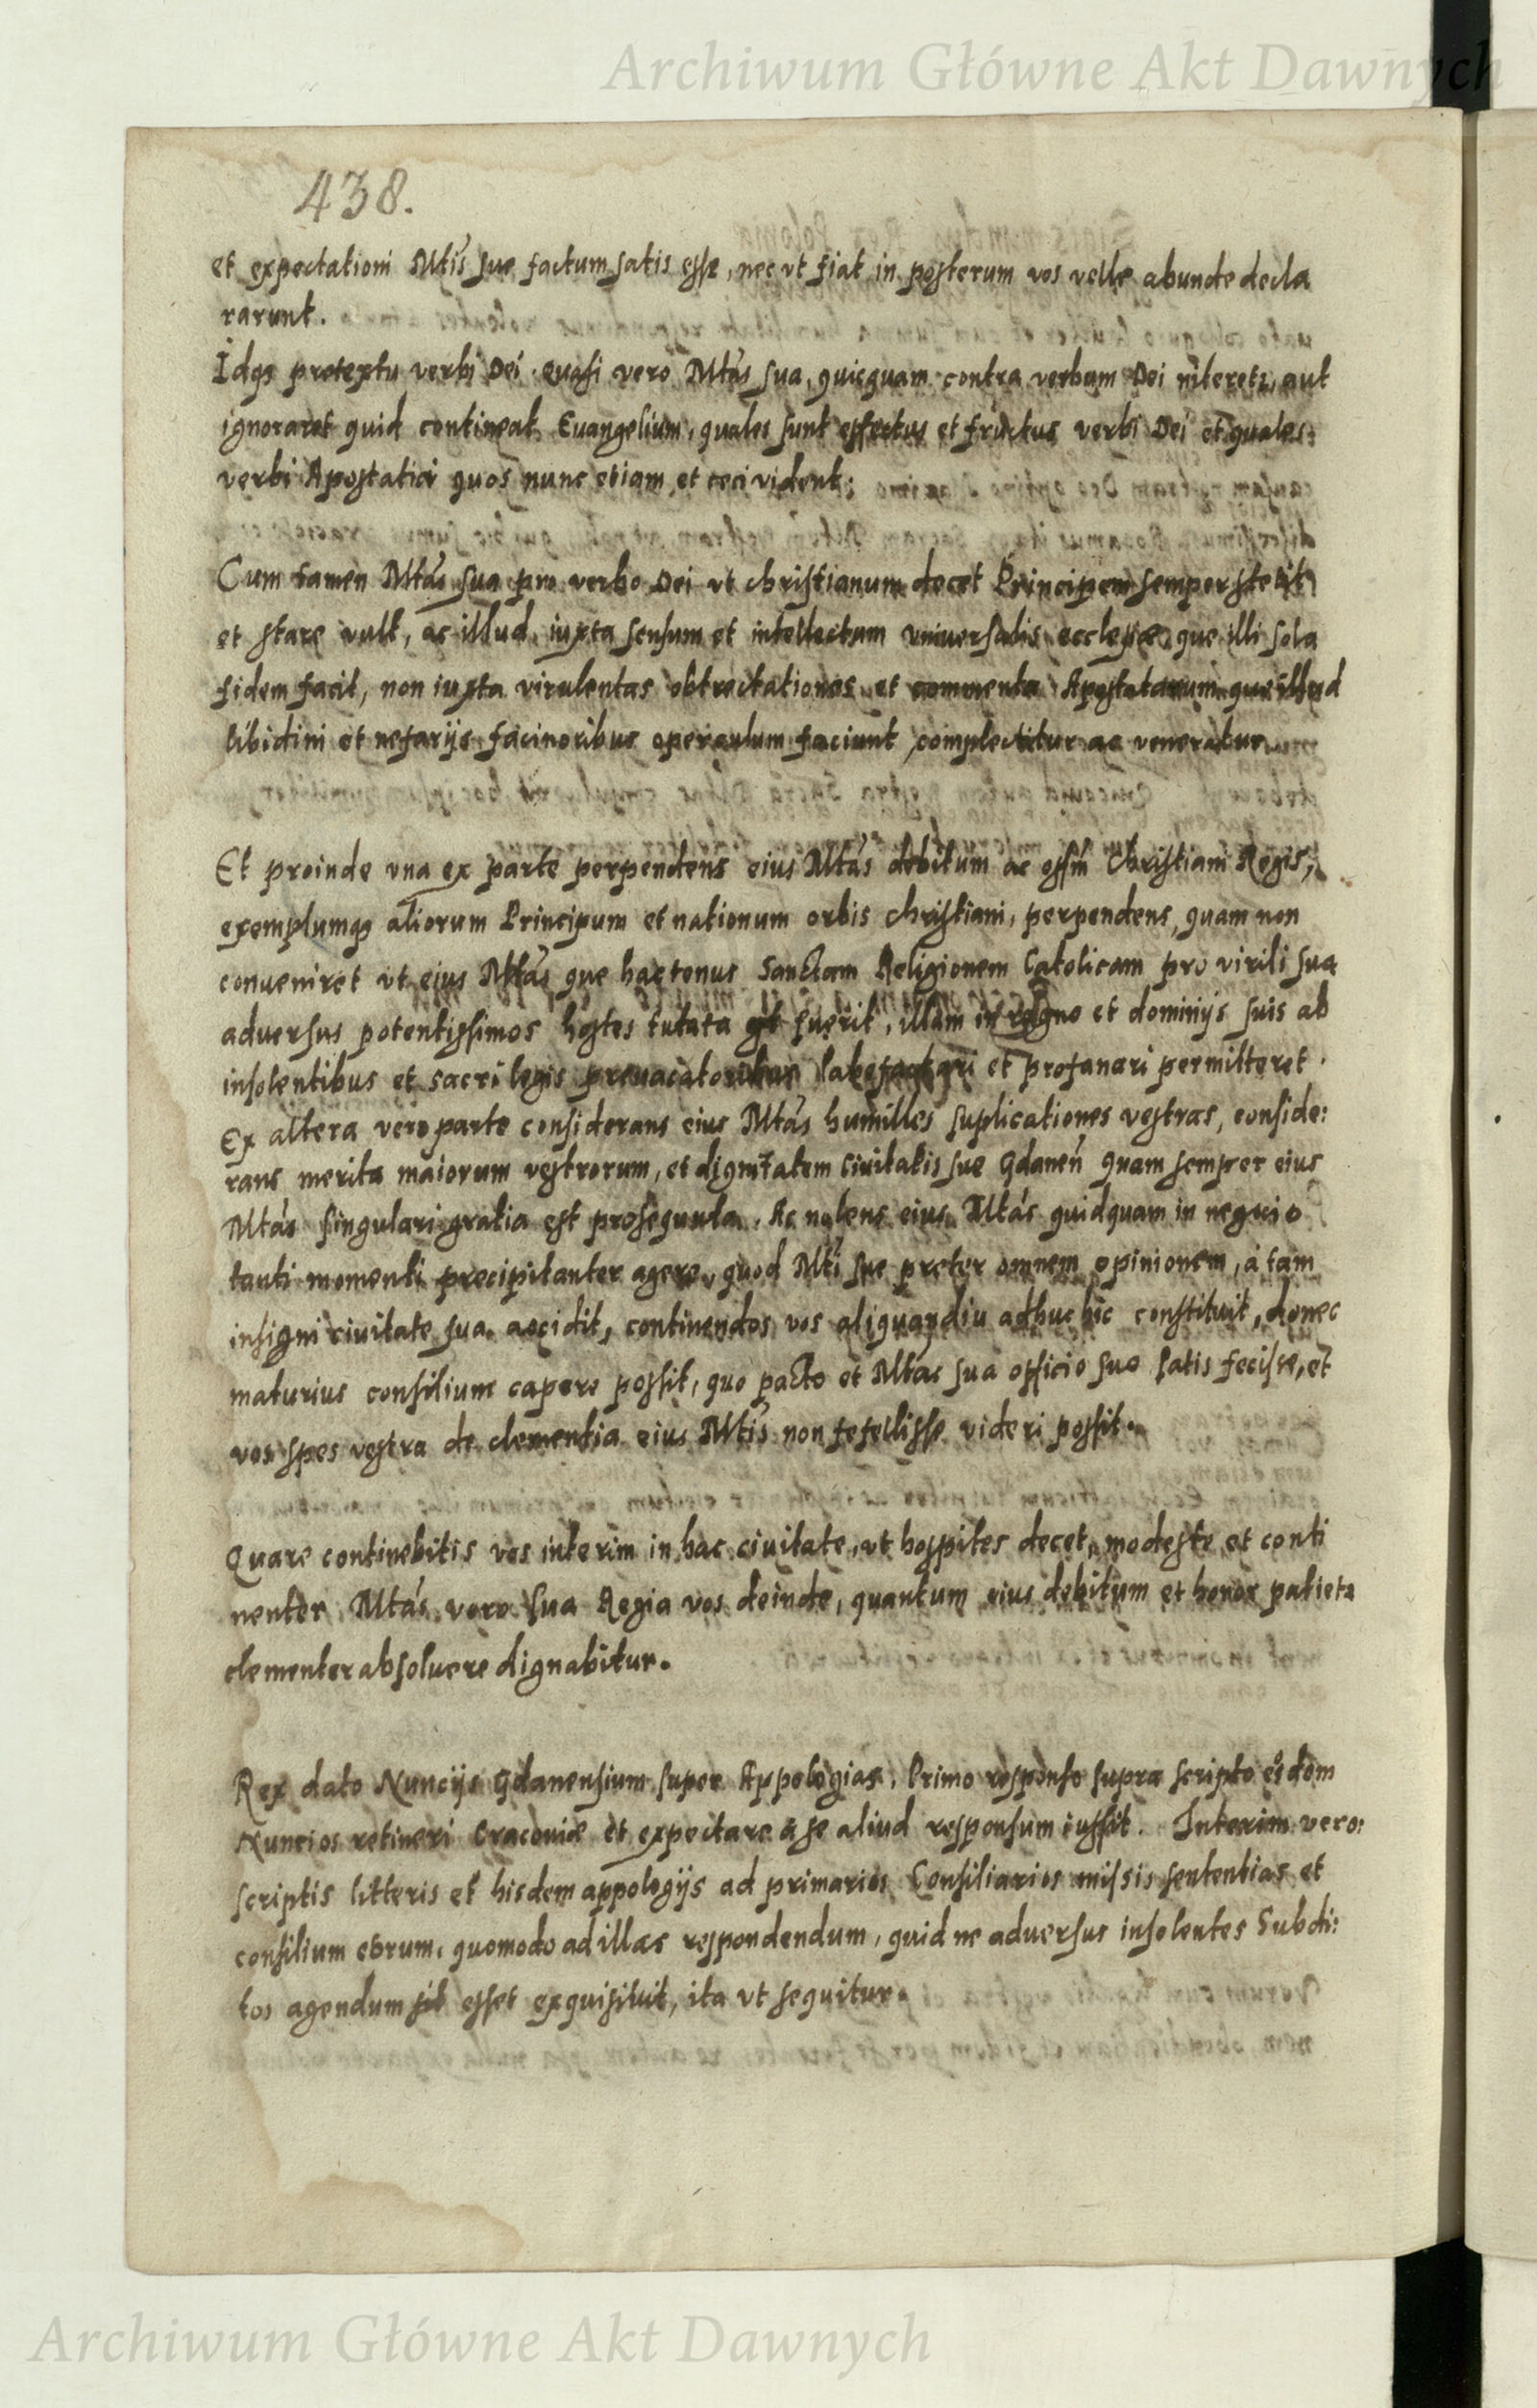 Archiwum Główne Akt Dawnych
438.
et expectationi Mtis sue factum satis esse, nec vt fiat in posterum vos velle abunde decla
rarunt.
Idqȝ pretextu verbi Dei. quasi vero Mtas sua, quicquam contra verbum Dei niteretr, aut
ignoraret quid contineat Euangelium, quales sunt effectus et fructus verbi Dei et quales:
verbi Apostatici quos nunc etiam et ceci vident.
Cum tamen Mtas sua pro verbo Dei vt christianum decet Principem semper stetit
et stare vult, ac illud, iuxta sensum et intellectum vniuersalis ecclesiæ, que illi sola
fidem facit, non iuxta virulentas obtrectationes et commenta Apostatarum que illud
libidini et nefarijs facinoribus operculum faciunt, complectitur ac veneratur.
Et proinde vna ex parte perpendens eius Mtas debitum ac offm Christiani Regis,
exemplumqȝ aliorum Principum et nationum orbis christiani, perpendens, quam non
conueniret vt eius Mtas que hactenus Sanctam Religionem Catolicam pro virili sua
aduersus potentissimos hostes tutata sit fuerit, illam in regno et dominijs suis ab
insolentibus et sacrilegis preuacatoribus labefactari et profanari permitteret.
Ex altera vero parte considerans eius Mtas humilles suplicationes vestras, conside:
rans merita maiorum vestrorum, et dignitatem ciuitatis sue Gdanen quam semper eius
Mtas singulari gratia est prosequuta. Ac nolens eius Mtas quidquam in neguio
tanti momenti precipitanter agere, quod Mti sue preter omnem opinionem, à tam
insigni ciuitate sua accidit, continendos vos aliquandiu adhuc hic constituit, donec
maturius consilium capere possit, quo pacto et Mtas sua officio suo satis fecisse, et
vos spes vestra de clementia eius Mtis non fefellisse videri possit.
Quare continebitis vos interim in hac ciuitate, vt hospites decet, modeste et conti
nenter Mtas vero sua Regia vos deinde, quantum eius debitum et honor patietr
clementer absoluere dignabitur.
Rex dato Nuncijs Gdanensium super Appologias, Primo responso supra scripto eisdem
Nuncios retineri Cracouiæ et expectare à se aliud responsum iussit. Interim vero:
scriptis litteris et hisdem appologijs ad primarios Consiliarios missis sententias et
consilium eorum, quomodo ad illas respondendum, quid ne aduersus insolentes Subdi:
tos agendum sit esset exquisiuit, ita vt sequitur.
Archiwum Główne Akt Dawnych